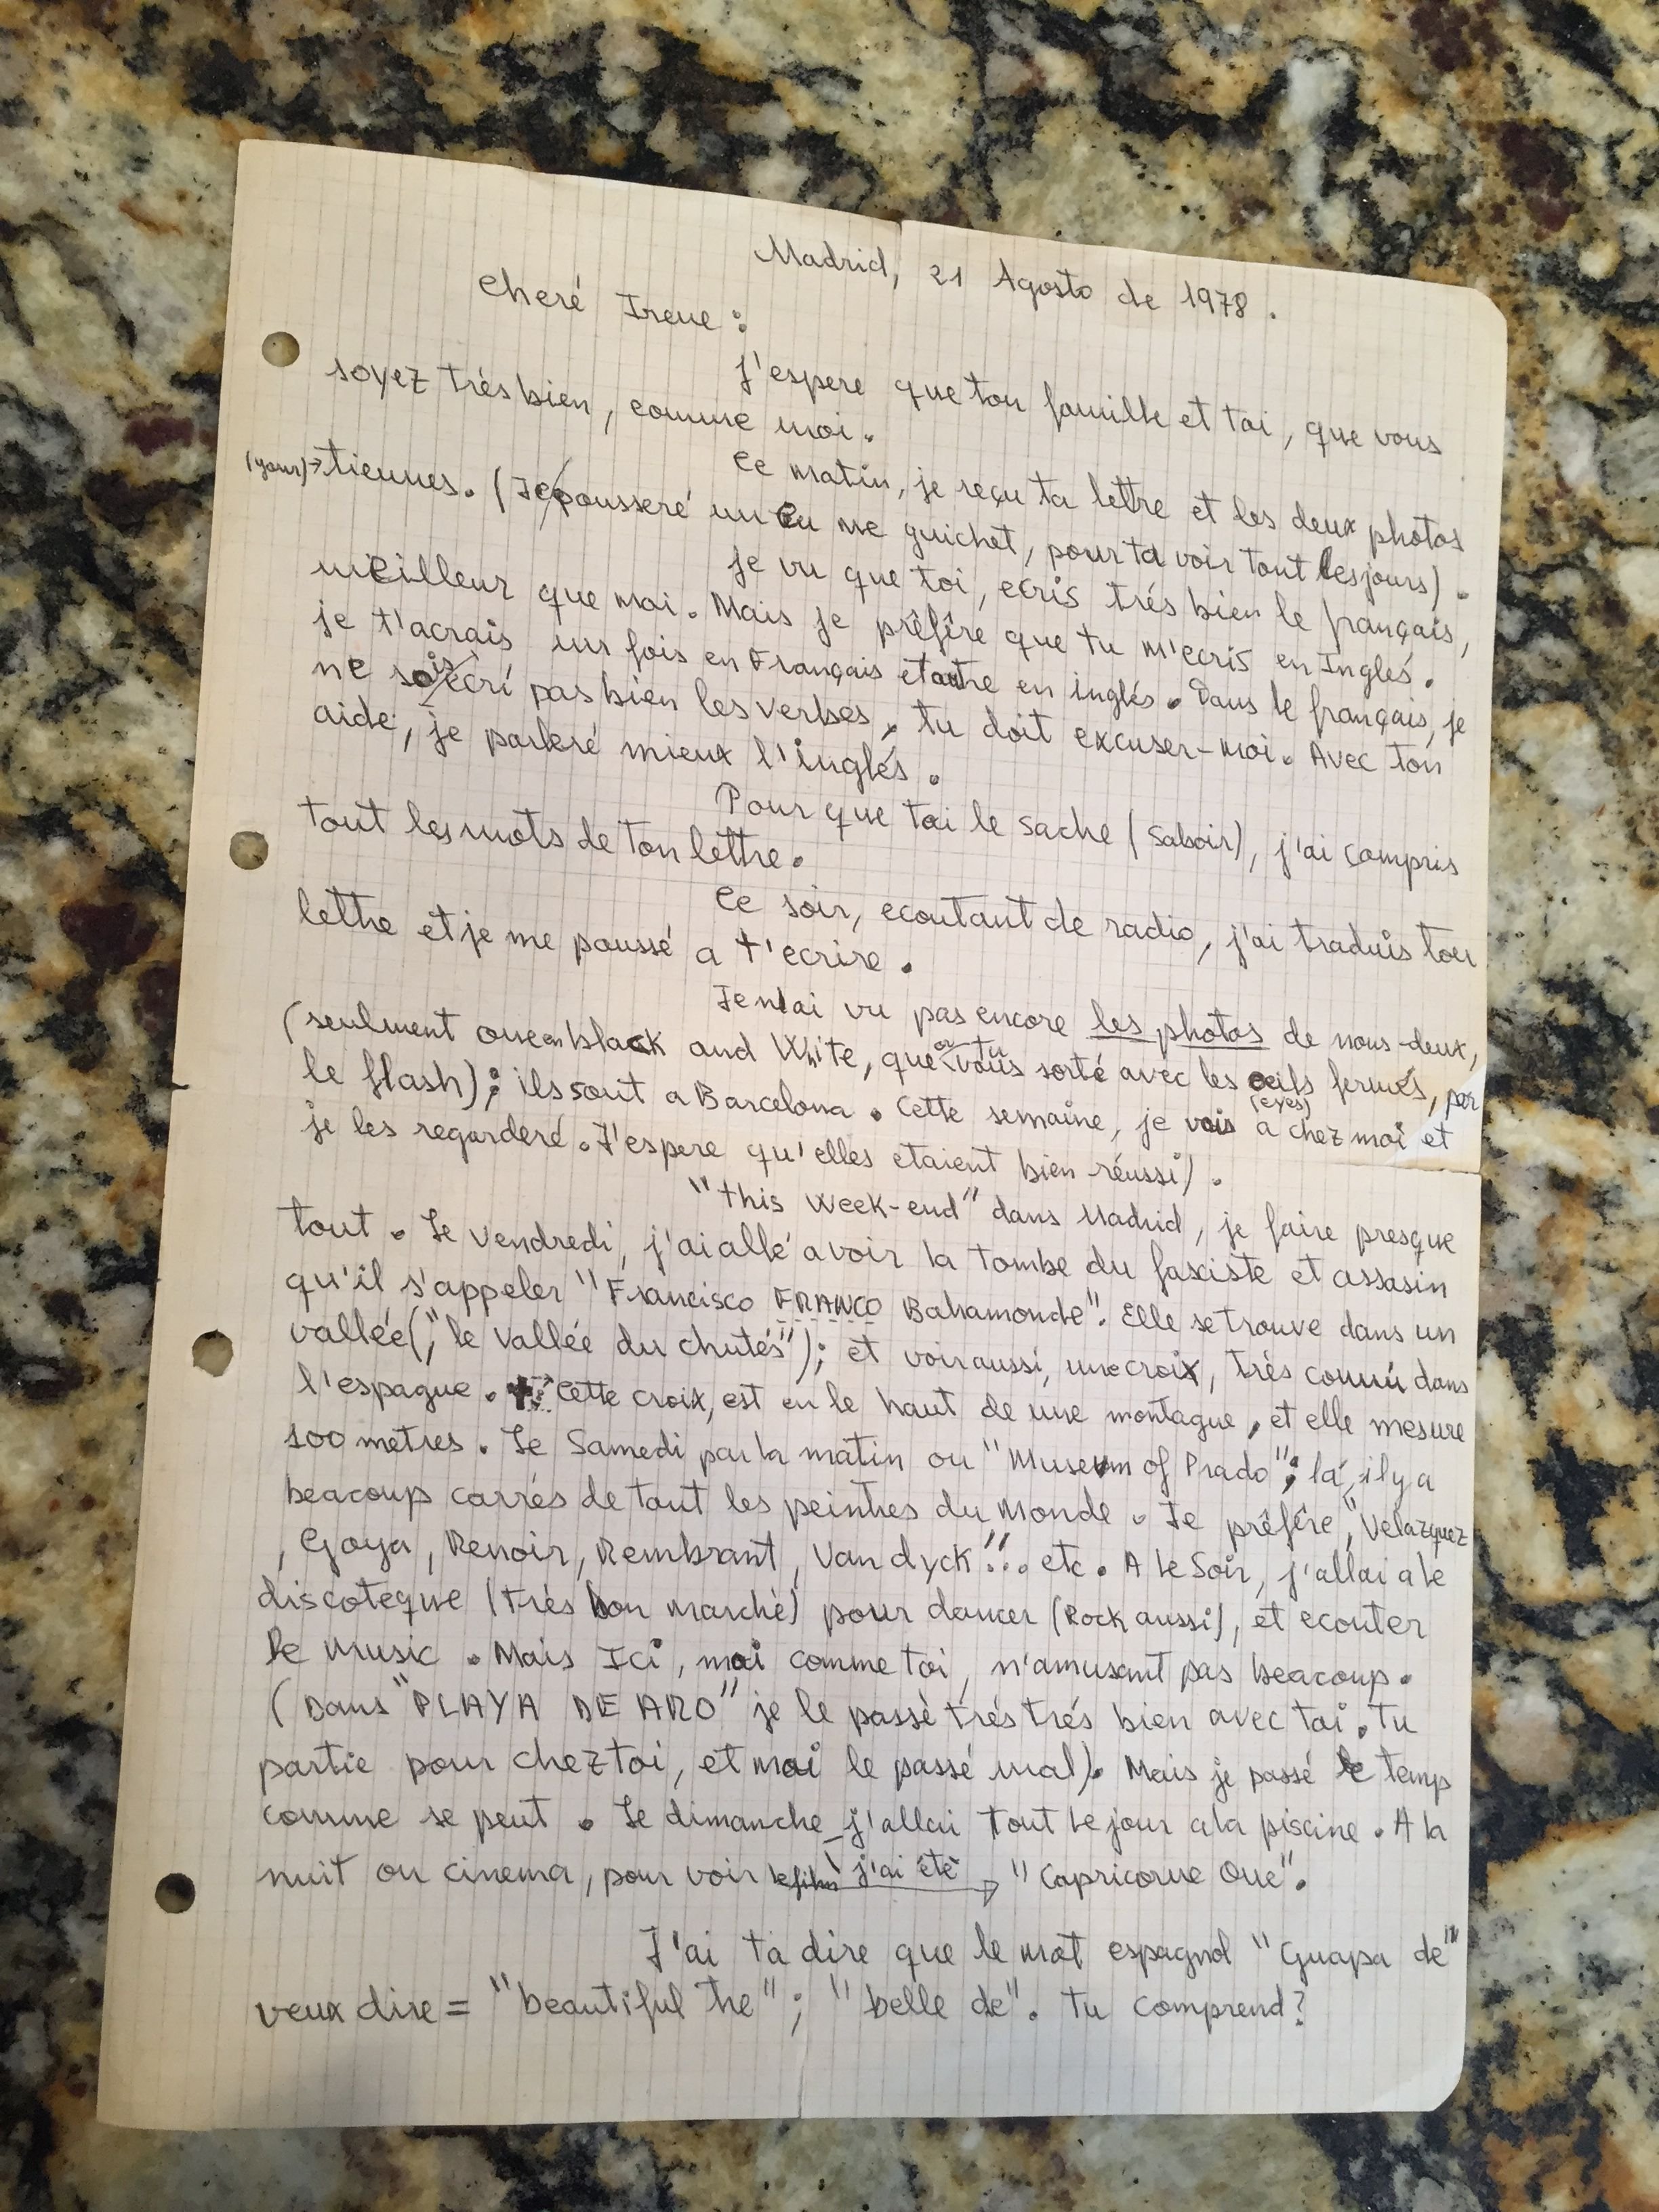 Madrid, 21 Agosto de 1978.
Cheré Irene:
J'espere que ton famille et toi, que vous
soyez trés bien, comme moi.
Ce matin, je reçu ta lettre et les deux photos
(your)→tiennes. (Je pousseré un me guichet, pour ta voir tout les jours).
Je vu que toi, ecris trés bien le français,
meilleur que moi. Mais je préfére que tu m'ecris en Inglés.
je t'acrais un fois en Français et autre en inglés. Dans le français, je
ne ecri pas bien les verbes, tu doit excuser-moi. Avec ton
aide, je parleré mieux l'inglés.
Pour que toi le sache (saboir), j'ai compris
tout les mots de ton lettre.
Ce soir, ecoutant de radio, j'ai traduis ton
lettre et je me poussé a t'ecrire.
Je n'ai vu pas encore les photos de nous-deux,
(seulment one en black and White, que or tu vous sorté avec les oeils fermés, par
le flash); ils sont a Barcelona. Cette semaine, je vais (eyes) a chez moi et
je les regarderé. J'espere qu'elles etaient bien réussi).
"this week-end" dans Madrid, je faire presque
tout. Le Vendredi, j'ai allé a voir la tombe du fasciste et assasin
qu'il s'appeler "Francisco FRANCO Bahamonde". Elle se trouve dans un
vallée(,"le Vallée du chutés"); et voir aussi, une croix, trés connú dans
l'espagne. Cette croix, est en le haut de une montagne, et elle mesure
100 metres. Le Samedi par la matin ou "Museum of Prado"; la, il y a
beacoup carrés de tout les peintres du Monde. Je préfére, "Velazquez
, Goya, Renoir, Rembrant, Van dyck"... etc. A le Soir, j'allai a le
discoteque (trés bon marché) pour dancer (Rock aussi), et ecouter
le music. Mais Ici, moi comme toi, n'amusant pas beacoup.
(Dans "PLAYA DE ARO" je le passé trés trés bien avec toi. Tu
partie pour chez toi, et moi le passé mal). Mais je passé le temp
comme se peut. Le dimanche j'allai tout le jour a la piscine. A la
nuit ou cinema, pour voir le film j'ai été → "Capricorne One".
J'ai ta dire que le mot espagnol "Guapa de"
veux dire = "beautiful the"; "belle de". Tu comprend?